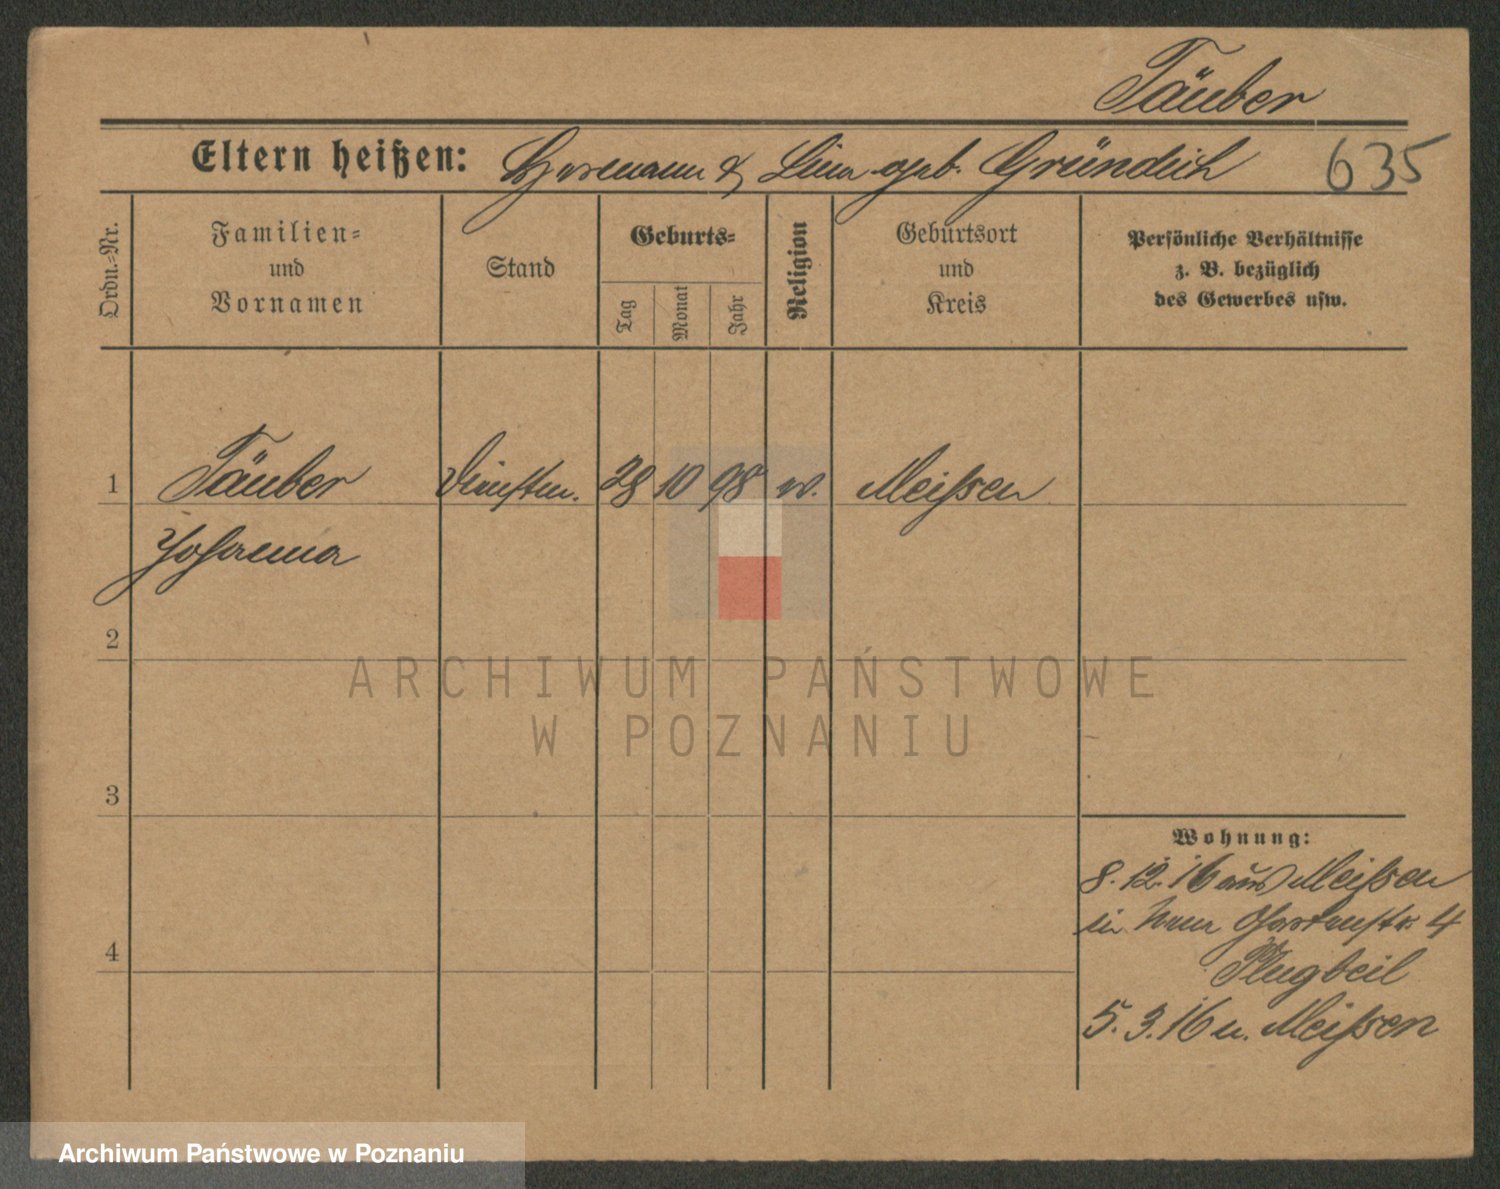 Täuber
Eltern heißen: Hermann & Lina geb. Gründich 635
Ordn.-Nr.
Familien-
und
Vornamen
Stand
Geburts-
Tag
Monat
Jahr
Religion
Geburtsort
und
Kreis
Persönliche Verhältnisse
z. B. bezüglich
des Gewerbes usw.
1 Täuber Dienstm. 28 10 98 Meißen
Johanna
2
3
4
Wohnung:
8. 12. 16 aus Meißen
in Gartenstr. 4
Plugbeil
5. 3. 16 n. Meißen
ARCHIWUM PAŃSTWOWE
W POZNANIU
Archiwum Państwowe w Poznaniu